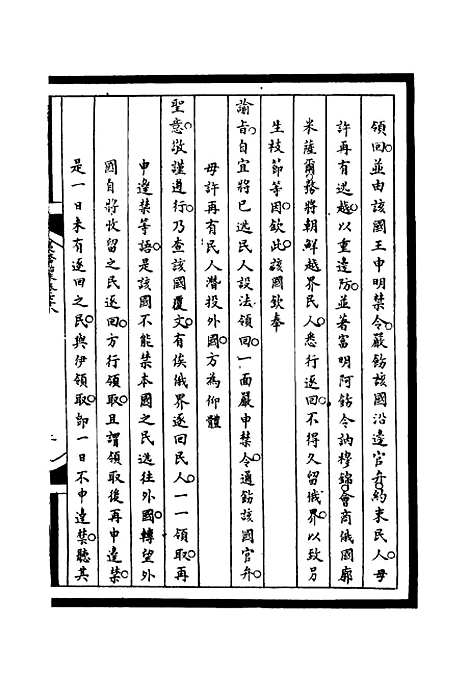 領回並由該國王申明禁令嚴飭該國沿邊官弁約束民人毋
許再有逃越以重邊防並著富明阿飭令訥穆錦會商俄國廓
米薩爾務將朝鮮越界民人悉行逐回不得久留俄界以致另
生枝節等因欽此該國欽奉
諭旨自宜將已逃民人設法領回一面嚴申禁令通飭該國官弁
毋許再有民人潛投外國方為仰體
聖意敬謹遵行乃查該國覆文有俟俄界逐回民人一一領取再
申邊禁等語是該國不能禁本國之民逃往外國轉望外
國自將收留之民逐回方行領取且謂領取後再申邊禁
是一日未有逐回之民與伊領取即一日不申邊禁聽其